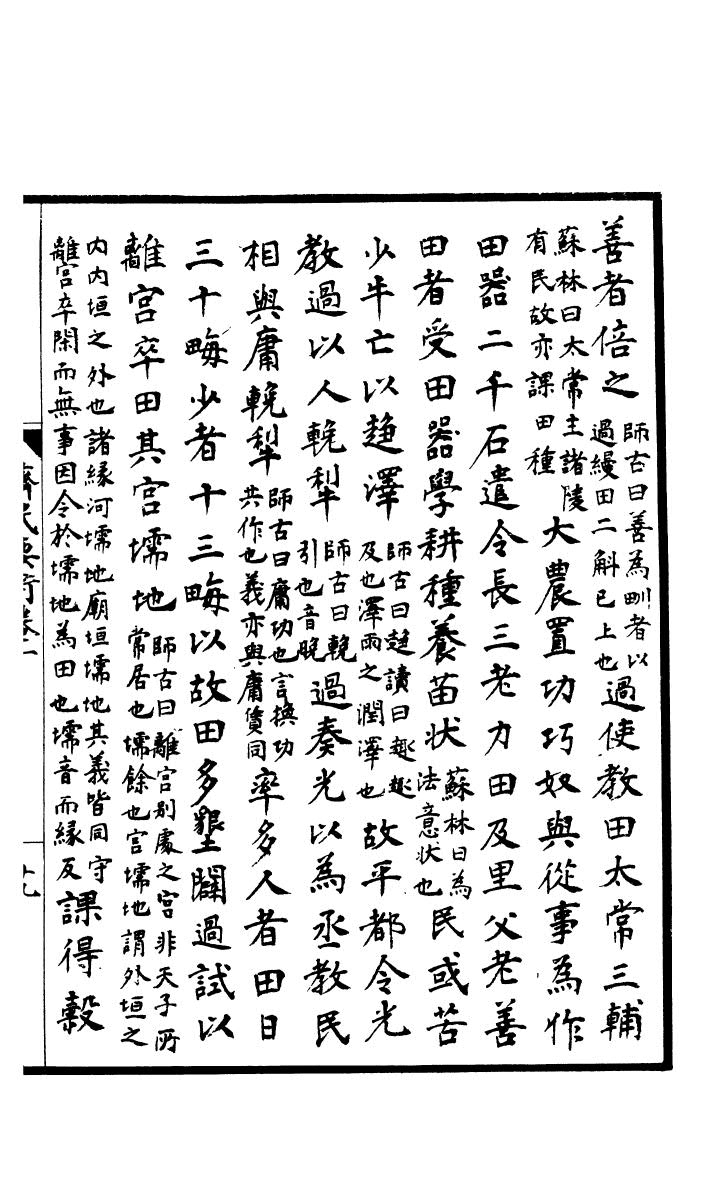 善者倍之師古曰善為甽者以過縵田二斛已上也過使教田太常三輔
蘇林曰太常主諸陵有民故亦課田種大農置功巧奴與從事為作
田器二千石遣令長三老力田及里父老善
田者受田器學耕種養苗狀蘇林曰為法意狀也民或苦
少牛亡以趍澤師古曰趍讀曰趣趣及也澤雨之潤澤也故平都令光
教過以人輓犂師古曰輓引也音晚過奏光以為丞教民
相與庸輓犂師古曰庸功也言換功共作也義亦與庸賃同率多人者田日
三十畮少者十三畮以故田多墾闢過試以
離宮卒田其宮壖地師古曰離宮别處之宮非天子所常居也壖餘也宮壖地謂外垣之
内内垣之外也諸緣河壖地廟垣壖地其義皆同守離宮卒閑而無事因令於壖地為田也壖音而緣反課得穀
齊民要術卷一
十九